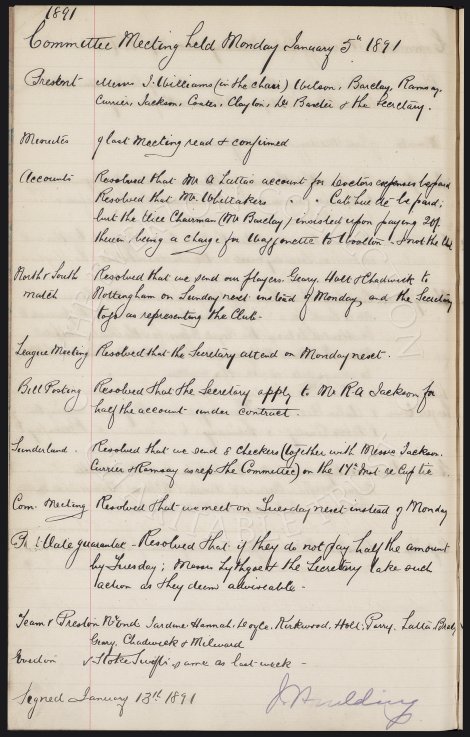 1891
Committee Meeting held Monday January 5th 1891
Present Messrs J. Williams (in the Chair) Wilson, Barclay, Ramsay,
Currier, Jackson, Coates, Clayton, Dr Baxter & the Secretary.
Minutes of last Meeting read & confirmed
Accounts Resolved that Mr A Latta's account for Doctors expenses be paid
Resolved that Mr Whittakers " " Cab hire be paid;
but the Vice Chairman (Mr Barclay) insisted upon paying 20/-
therein being a charge for Waggonette to Woolton & not the Club
North & South Resolved that we send our players Geary, Holt & Chadwick to
match Nottingham on Sunday next instead of Monday, and the Secretary
to go as representing the Club
League Meeting Resolved that the Secretary attend on Monday next.
Bill Posting Resolved that the Secretary apply to Mr R A Jackson for
half the account under contract.
Sunderland. Resolved that we send 8 checkers (together with Messrs Jackson.
Currier & Ramsay as rep the Committee) on the 17th inst re Cup tie
Com. Meeting Resolved that we meet on Tuesday next instead of Monday
guarantee - Resolved that if they do not pay half the amount
by Tuesday; Messrs Lythgoe & the Secretary take such
action as they deem adviseable -
Team v Preston Nth End Jardine Hannah, Doyle, Kirkwood, Holt, Parry, Latta, Brady
Geary, Chadwick & Milward
Everton v Stoke Swifts same as last week -
Signed January 13th 1891 J Houlding